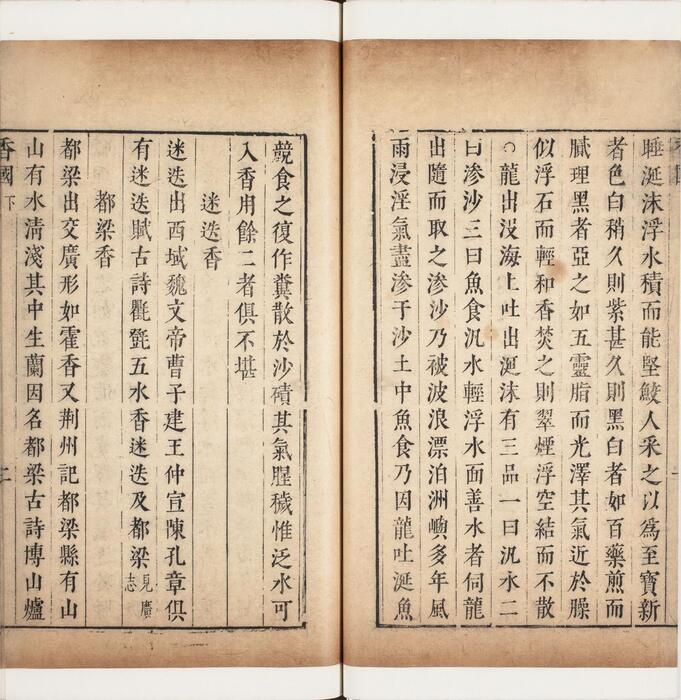 睡涎沫浮水積而能堅鮫人采之以為至寶新
者色白稍久則紫甚久則黑白者如百藥煎而
膩理黑者亞之如五靈脂而光澤其氣近於臊
似浮石而輕和香焚之則翠煙浮空結而不散
○龍出沒海上吐出涎沫有三品一曰汎水二
曰滲沙三曰魚食汎水輕浮水面善水者伺龍
出隨而取之滲沙乃被波浪漂泊洲嶼多年風
雨浸淫氣盡滲于沙土中魚食乃因龍吐涎魚
競食之復作糞散於沙磧其氣腥穢惟泛水可
入香用餘二者俱不堪
迷迭香
迷迭出西域魏文帝曹子建王仲宣陳孔章俱
有迷迭賦古詩氍毹五水香迷迭及都梁見廣志
都梁香
都梁出交廣形如霍香又荆州記都梁縣有山
山有水清淺其中生蘭因名都梁古詩博山爐
香國 下